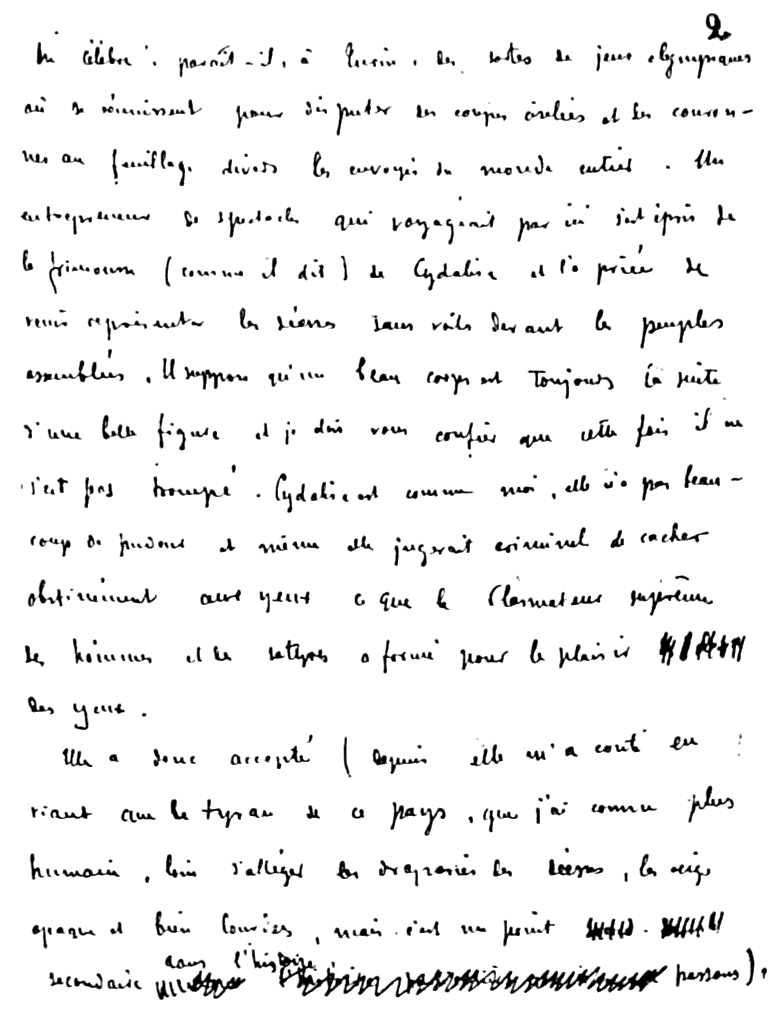 2
On célèbre, paraît-il, à Turin, des sortes de jeux olympiques
où se réunissent pour disputer des coupes ciselées et des couron-
nes au feuillage divers les envoyés du monde entier. Un
entrepreneur de spectacles qui voyageait par ici s'est épris de
la frimousse (comme il dit) de Cydalise et l'a priée de
venir représenter les déesses sans voile devant les peuples
assemblées. Il suppose qu'un beau corps est toujours la suite
d'une belle figure et je dois vous confier que cette fois il ne
s'est pas trompé. Cydalise est comme moi, elle n'a pas beau-
coup de pudeur et même elle jugerait criminel de cacher
obstinément aux yeux ce que le Plasmateur suprême
des hommes et des satyres a formé pour le plaisir
des yeux.
Elle a donc accepté (depuis elle m'a conté en
riant que le tyran de ce pays, que j'ai connu plus
humain, loin d'alléger les draperies des déesses, les exige
opaques et bien lourdes, mais c'est un point
secondaire dans l'histoire, passons),